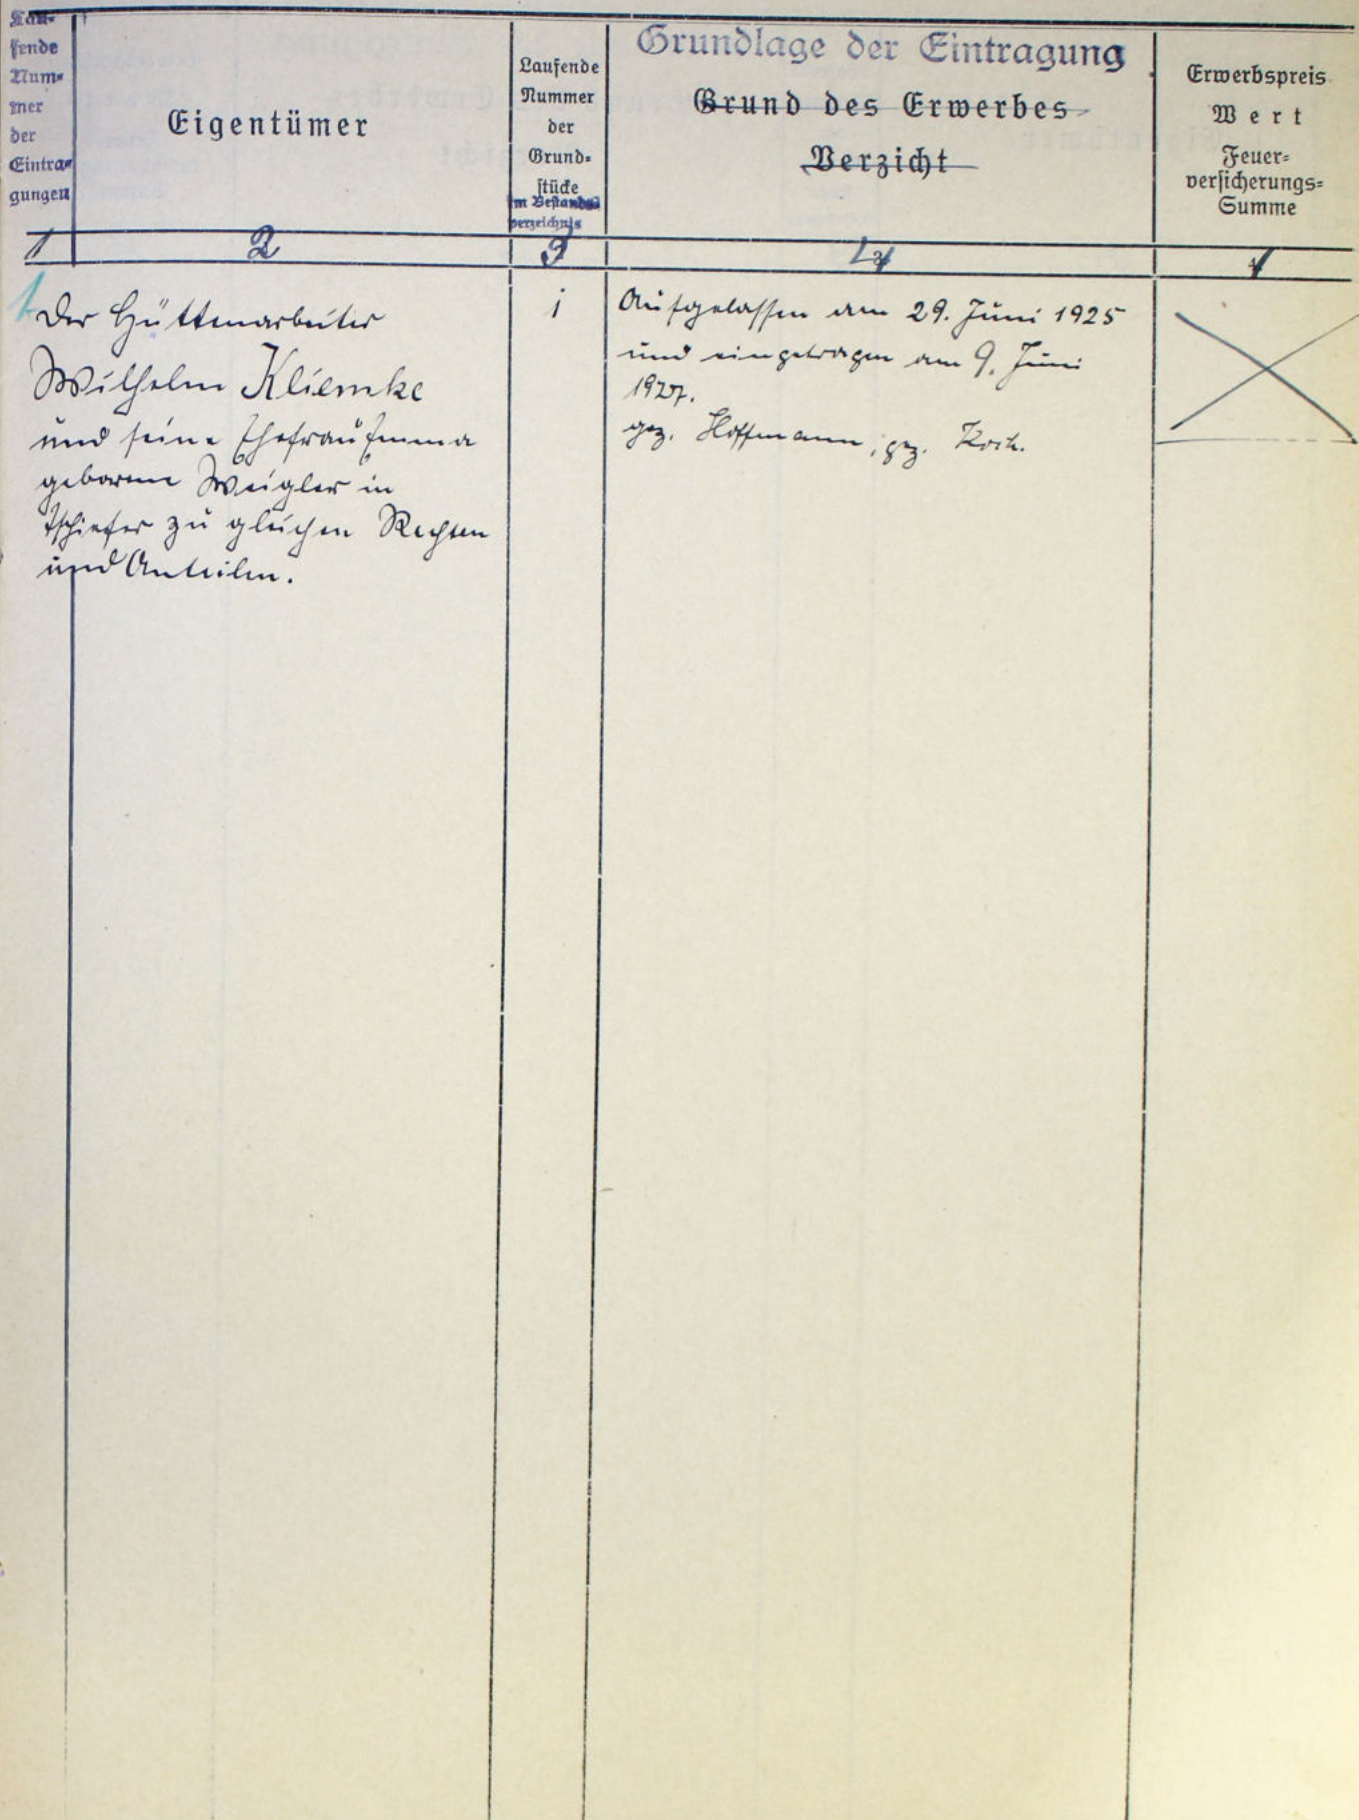 Lau-
fende
Num-
mer
der
Eintra-
gungen
Eigentümer
Laufende
Nummer
der
Grund-
stücke
im Bestands-
verzeichnis
Grundlage der Eintragung
Grund des Erwerbes
Verzicht
Erwerbspreis
Wert
Feuer-
versicherungs-
Summe
1 2 3 4
1. Der Hüttenarbeiter
Wilhelm Kliemke
und seine Ehefrau Emma
geborene Weigler in
Tschiefer zu gleichen Rechten
und Anteilen.
1
Aufgelassen am 29. Juni 1925
und eingetragen am 9. Juni
1927.
gez. Hoffmann, gez. Koch.